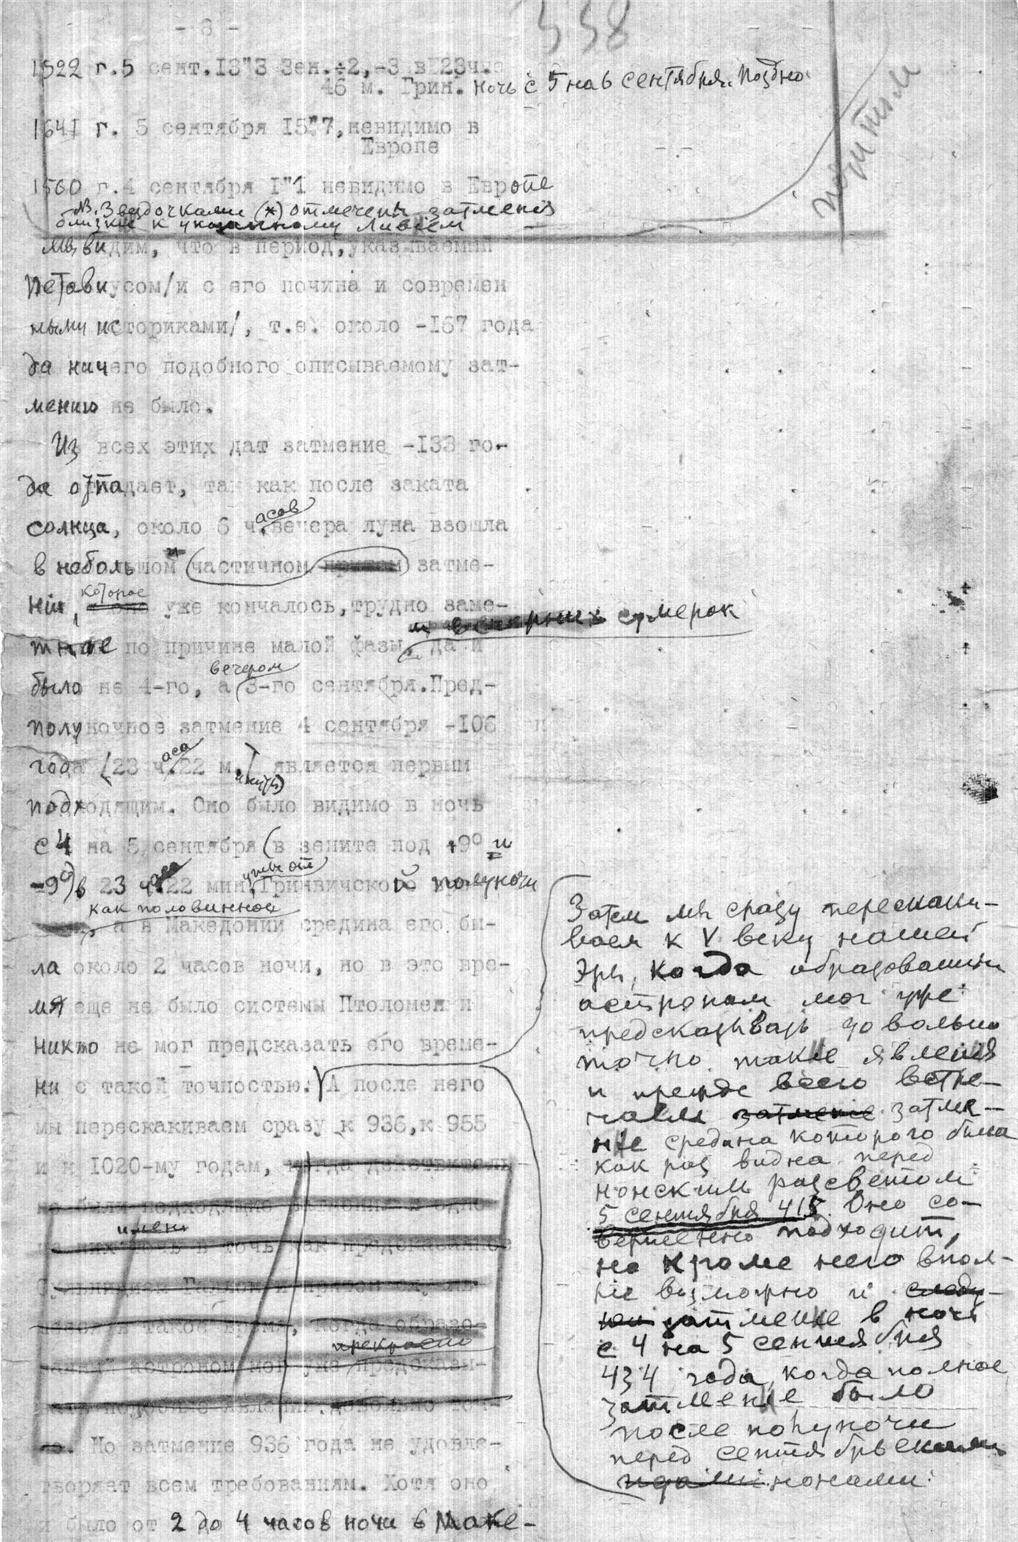 - 8 -
338
1522 г.5 сент.13"3 Зен.÷2,-3 в 23ч.
46 м. Грин. Ночь с 5 на 6 сентября. Поздно.
1641 г. 5 сентября 15"7, невидимо в
Европе
петитом
1560 г.4 сентября 1"1 невидимо в Европе
NB. Звездочками (*) отмечены затмения
близкие к указанному Ливием
Мы видим, что в период, указываемый
Петавиусом/и с его почина и современ
ными историками/, т.е. около -167 года
да ничего подобного описываемому зат-
мению не было.
Из всех этих дат затмение -133 го-
да отпадает, так как после заката
солнца, около 6 часов вечера луна взошла
в небольшом и частичном затме-
нии, которое уже кончалось, трудно заме-
и вечерних сумерок
тное по причине малой фазы, да и
было не 4-го, а вечером 3-го сентября. Пред-
полуночное затмение 4 сентября -106
года (23 часа 22 минуты) является первым
подходящим. Оно было видимо в ночь
с 4 на 5 сентября (в зените под +9° и
-9°) в 23 часа 22 минуты от Гринвичской полуночи
как половинное
, а в Македонии средина его бы-
ла около 2 часов ночи, но в это вре-
мя еще не было системы Птоломея и
никто не мог предсказать его време-
ни с такой точностью. А после него
мы перескакиваем сразу к 936, к 955
и к 1020-му годам, когда действитель-
но были подходящие затмения и одно
имен
прекрасно
но. Но затмение 936 года не удовле-
творяет всем требованиям. Хотя оно
и было от 2 до 4 часов ночи в Маке-
Затем мы сразу перескаки-
ваем к V веку нашей
эры, когда образованный
астроном мог уже
предсказывать довольно
точно такие явления
и прежде всего встре-
чаем затмение затме-
ние средина которого была
как раз видна перед
нонским рассветом
5 сентября 415. Оно со-
вершенно подходит,
но кроме него впол-
не возможно и следу-
ющ затмение в ночь
с 4 на 5 сентября
434 года, когда полное
затмение было
после полуночи
перед сентябрьскими
идами нонами.